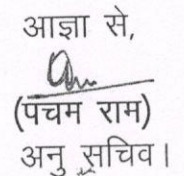 आज्ञा से,
(पंचम राम)
अनु सचिव।